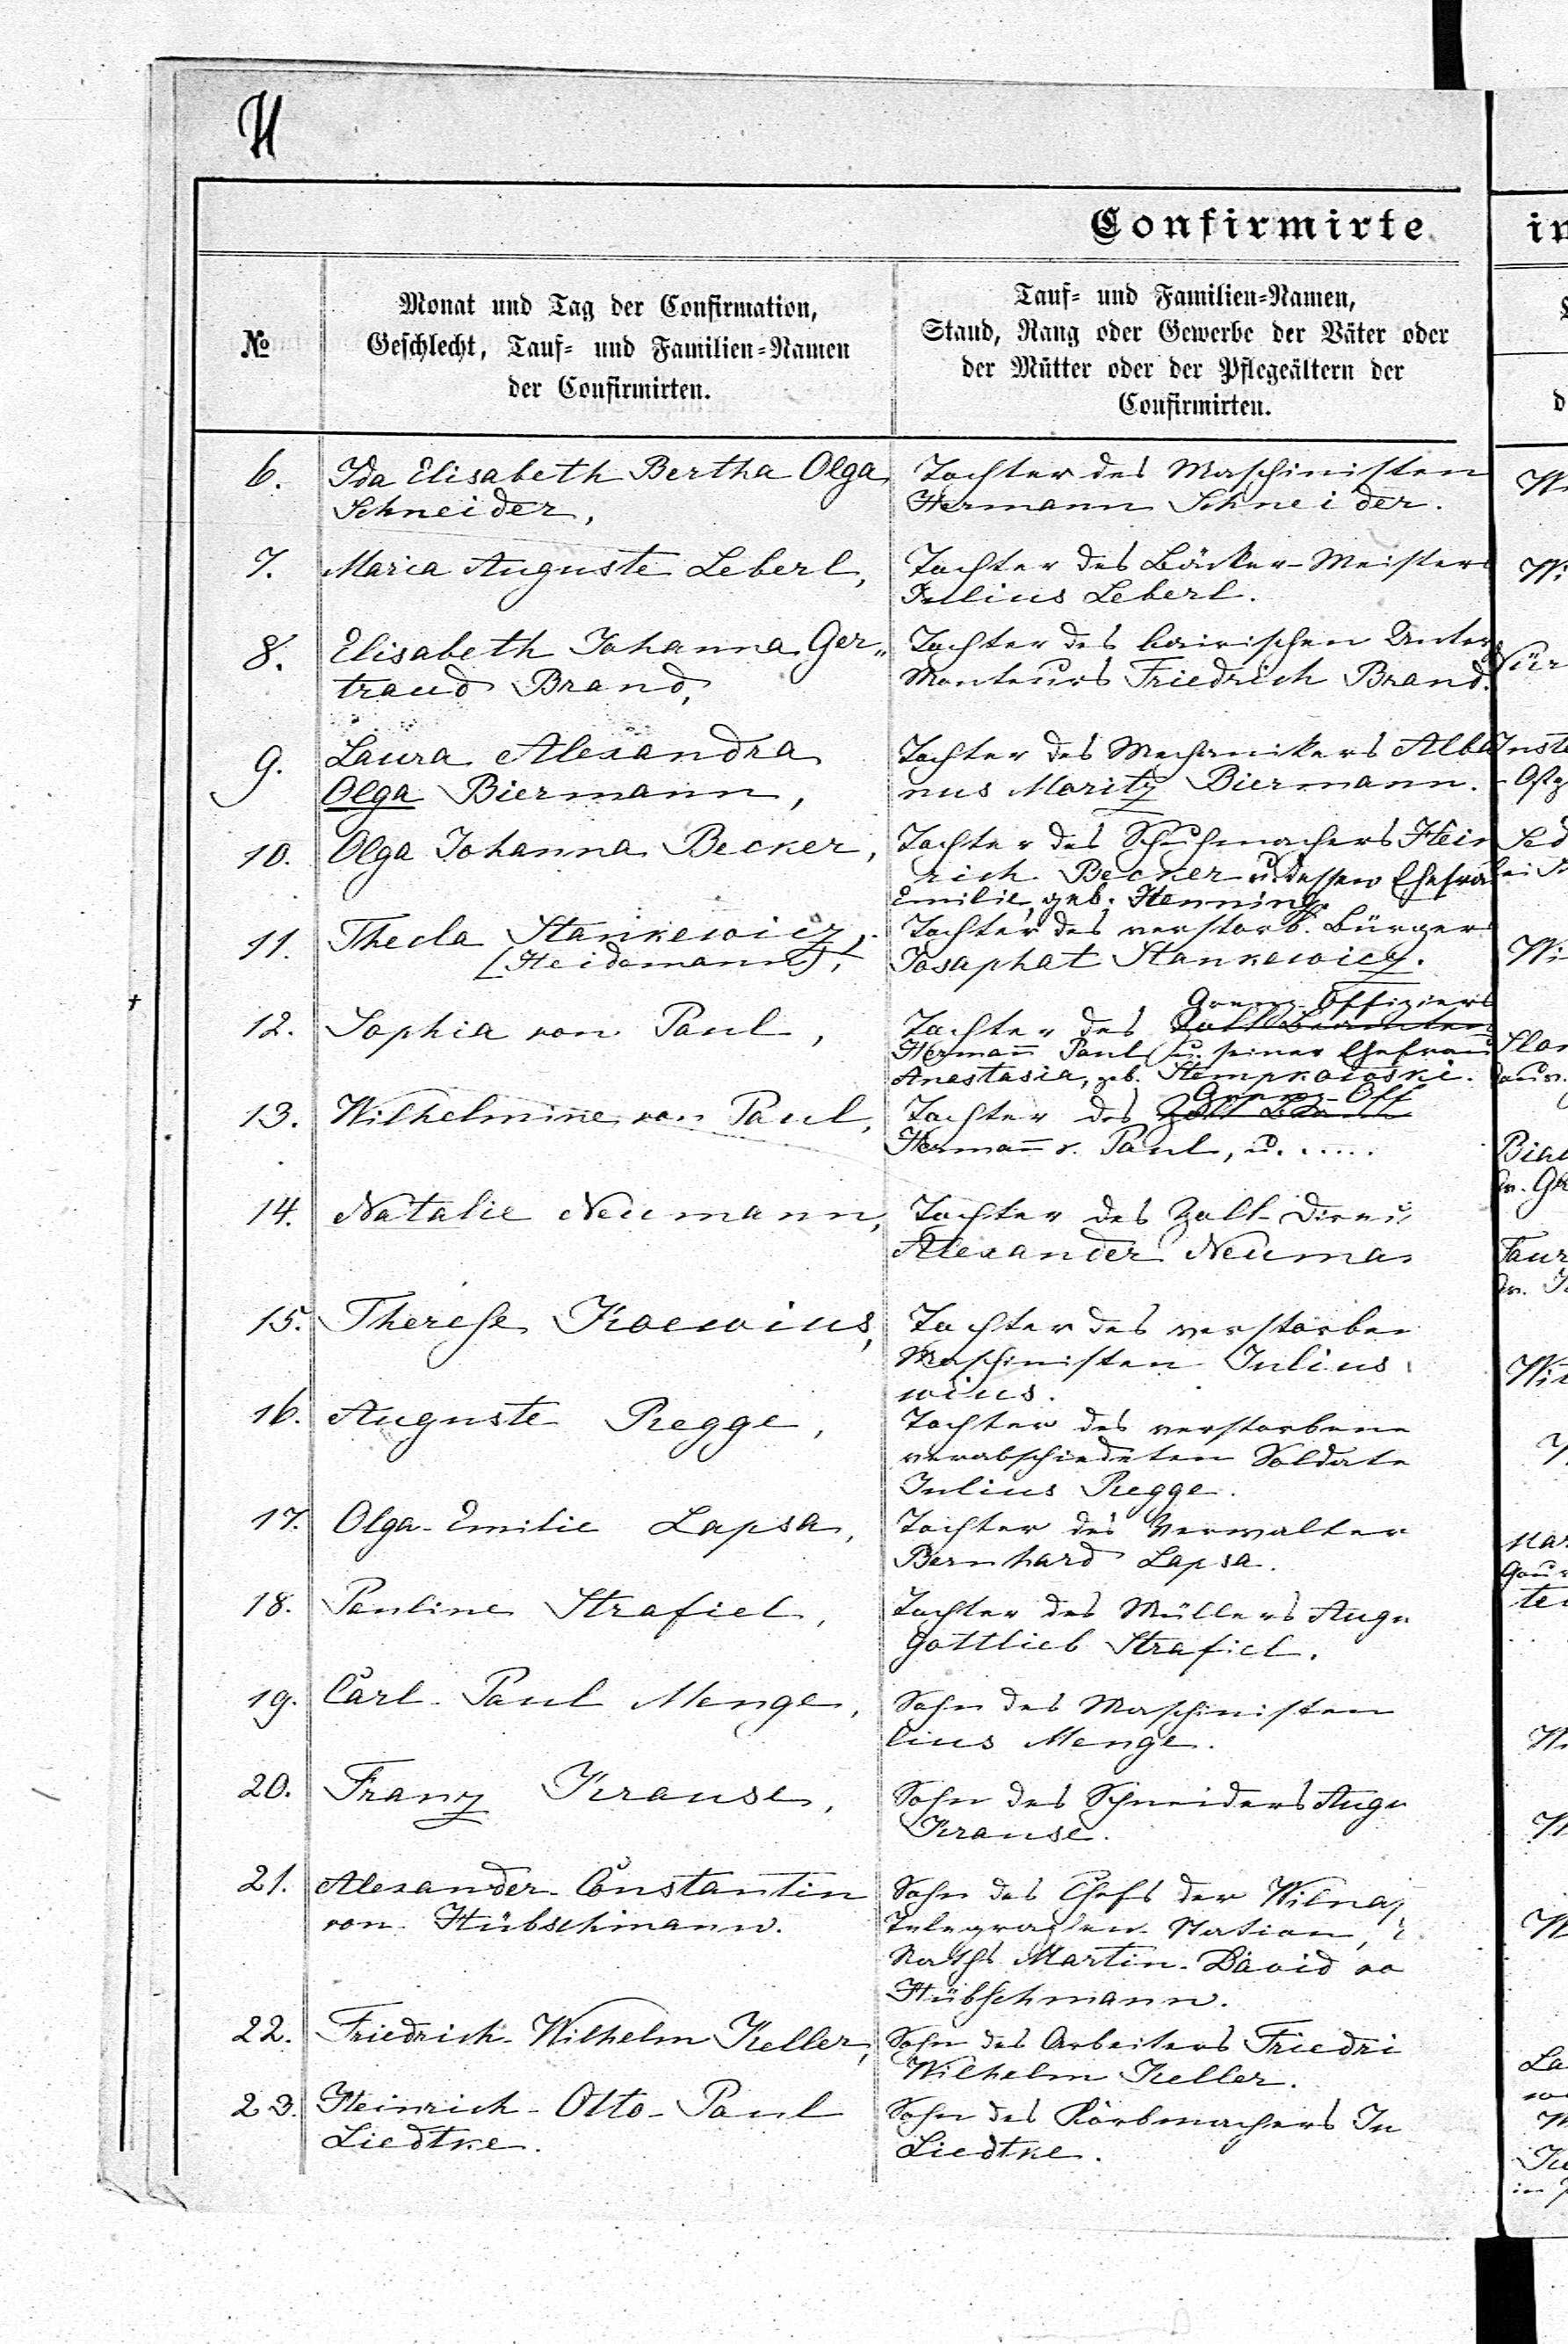 Confirmirte
№
Monat und Tag der Confirmation,
Geschlecht, Tauf- und Familien-Namen
der Confirmirten.
Tauf- und Familien-Namen,
Stand, Rang oder Gewerbe der Väter oder
der Mütter oder der Pflegeältern der
Confirmirten.
6.
Ida Elisabeth Bertha Olga
Schneider,
Tochter des Maschinisten
Hermann Schneider.
7.
Maria Auguste Leberl,
Tochter des Bäcker-Meisters
Julius Leberl.
8.
Elisabeth Johanna Ger„
traud Brand,
Tochter des bairischen Unter
Monteurs Friedrich Brand.
9.
Laura Alexandra
Olga Biermann,
Tochter des Mechanikers Alba
nus Moritz Biermann.
10.
Olga Johanna Becker,
Tochter des Schuhmachers Hein
rich Becker u. dessen Ehefrau
Emilie, geb. Henning.
11.
Thecla Stankewicz,
(Heidemann),
Tochter des verstorb. Bürgers
Josaphat Stankewicz.
12.
Sophia von Paul,
Grenz-Offiziers
Tochter des Zoll Beamten
Hermann Paul u. seiner Ehefrau
Anestasia, geb. Stempkowski.
13.
Wilhelmine von Paul,
Grenz-Off
Tochter des Zoll Beam
Hermann v. Paul, u. .....
14.
Natalie Neumann,
Tochter des Zoll-Direc
Alexander Neuma
15.
Therese Koewius,
Tochter des verstorben
Maschinisten Julius
wius.
16.
Auguste Regge,
Tochter des verstorbene
verabschiedeten Soldate
Julius Regge.
17.
Olga-Emilie Lapsa,
Tochter des Verwalter
Bernhard Lapsa.
18.
Pauline Strafiel,
Tochter des Müllers Augu
Gottlieb Strafiel.
19.
Carl-Paul Menge,
Sohn des Maschinisten
lius Menge.
20.
Franz Krause,
Sohn des Schneiders Augu
Krause.
21.
Alexander-Constantin
von Hübschmann.
Sohn des Chefs der Wilnas
Telegrafen-Station,
Raths Martin-David vo
Hübschmann.
22.
Friedrich-Wilhelm Keller,
Sohn des Arbeiters Friedri
Wilhelm Keller.
23.
Heinrich-Otto-Paul
Liedtke.
Sohn des Korbmachers Ju
Liedtke.